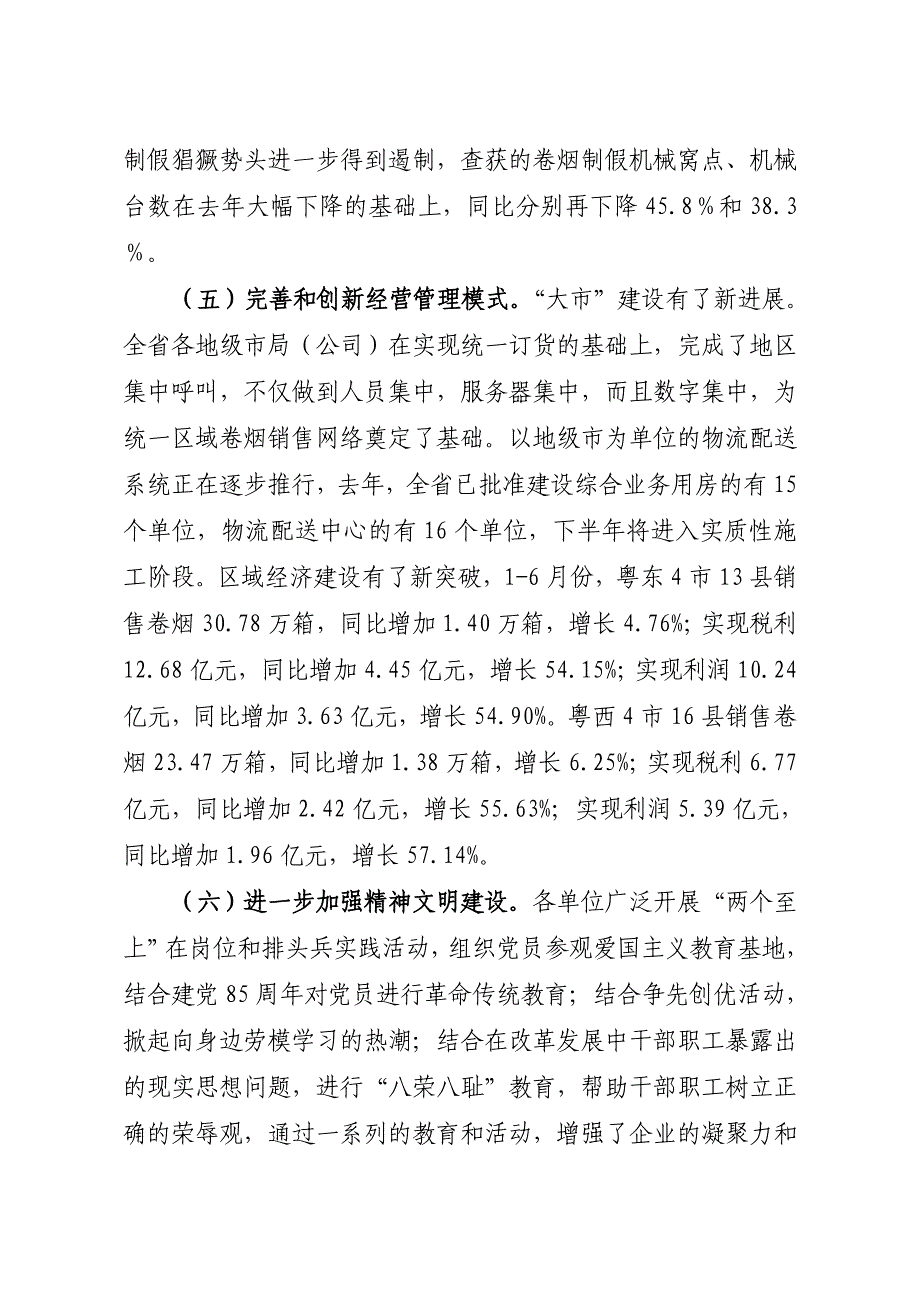 制假猖獗势头进一步得到遏制，查获的卷烟制假机械窝点、机械
台数在去年大幅下降的基础上，同比分别再下降 45.8％和 38.3
％。
（五）完善和创新经营管理模式。“大市”建设有了新进展。
全省各地级市局（公司）在实现统一订货的基础上，完成了地区
集中呼叫，不仅做到人员集中，服务器集中，而且数字集中，为
统一区域卷烟销售网络奠定了基础。以地级市为单位的物流配送
系统正在逐步推行，去年，全省已批准建设综合业务用房的有 15
个单位，物流配送中心的有 16 个单位，下半年将进入实质性施
工阶段。区域经济建设有了新突破，1-6 月份，粤东 4 市 13 县销
售卷烟 30.78 万箱，同比增加 1.40 万箱，增长 4.76%；实现税利
12.68 亿元，同比增加 4.45 亿元，增长 54.15%；实现利润 10.24
亿元，同比增加 3.63 亿元，增长 54.90%。粤西 4 市 16 县销售卷
烟 23.47 万箱，同比增加 1.38 万箱，增长 6.25%；实现税利 6.77
亿元，同比增加 2.42 亿元，增长 55.63%；实现利润 5.39 亿元，
同比增加 1.96 亿元，增长 57.14%。
（六）进一步加强精神文明建设。各单位广泛开展“两个至
上”在岗位和排头兵实践活动，组织党员参观爱国主义教育基地，
结合建党 85 周年对党员进行革命传统教育；结合争先创优活动，
掀起向身边劳模学习的热潮；结合在改革发展中干部职工暴露出
的现实思想问题，进行“八荣八耻”教育，帮助干部职工树立正
确的荣辱观，通过一系列的教育和活动，增强了企业的凝聚力和